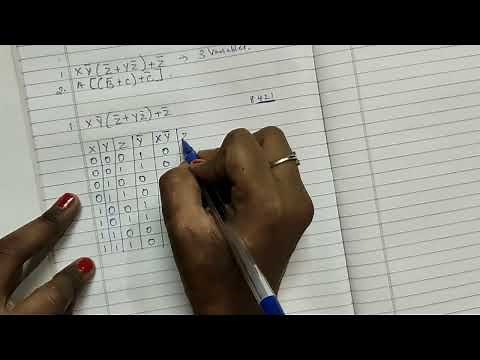 1. X Ȳ ( Z̄ + Y Z̄ ) + Z̄ → 3 Variables.
2. A [ ( B̄ + C ) + C̄ ].
P.421
1. X Ȳ ( Z̄ + Y Z̄ ) + Z̄
X Y Z Ȳ X Ȳ Z
0 0 0 1 0
0 0 1 1 0
0 1 0 0
0 1 1 0
1 0 0 1
1 0 1 1
1 1 0 0
1 1 1 0